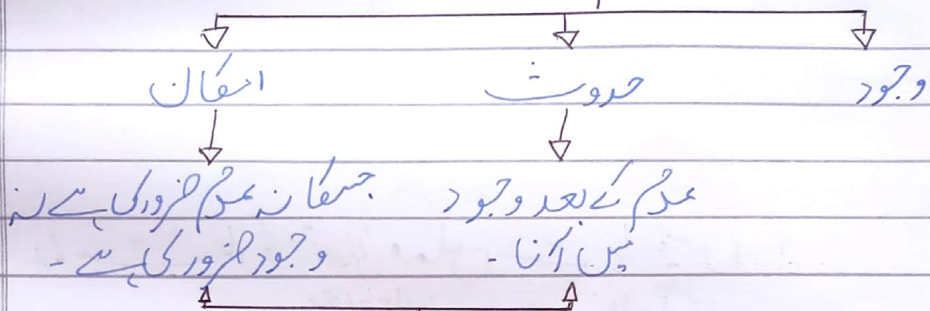 وجود
حدوث
امکان
عدم کے بعد وجود
میں آنا۔
جسکا نہ عدم ضروری ہے نہ
وجود ضروری ہے۔